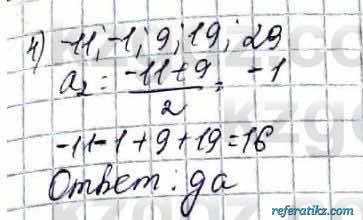 4) -11; -1; 9; 19; 29
a₂ = (-11+9)/2 = -1
-11-1+9+19=16
Ответ: да
referatikz.com